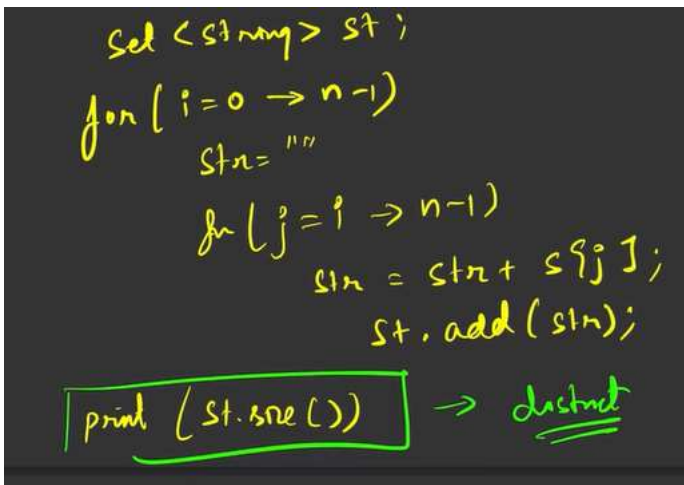 Set <string> st;
for( i=0 → n-1)
str= ""
for(j=i → n-1)
str = str + s[j];
st.add(str);
print (st.size()) → distinct